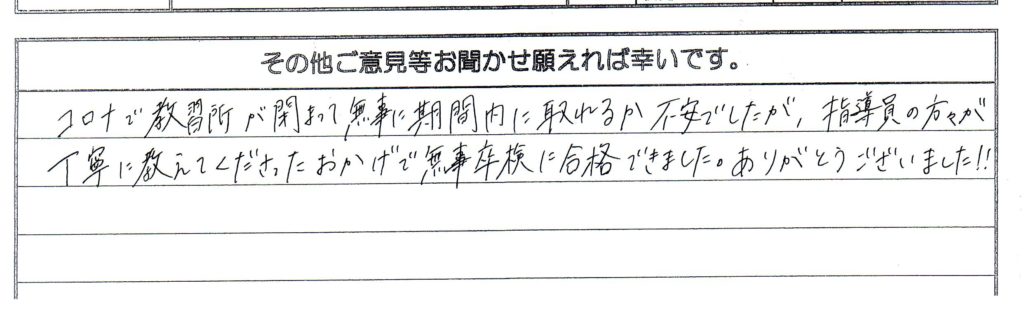 その他ご意見等お聞かせ願えれば幸いです。
コロナで教習所が閉まって無事に期間内に取れるか不安でしたが、指導員の方々が
丁寧に教えてくださったおかげで無事卒検に合格できました。ありがとうございました!!